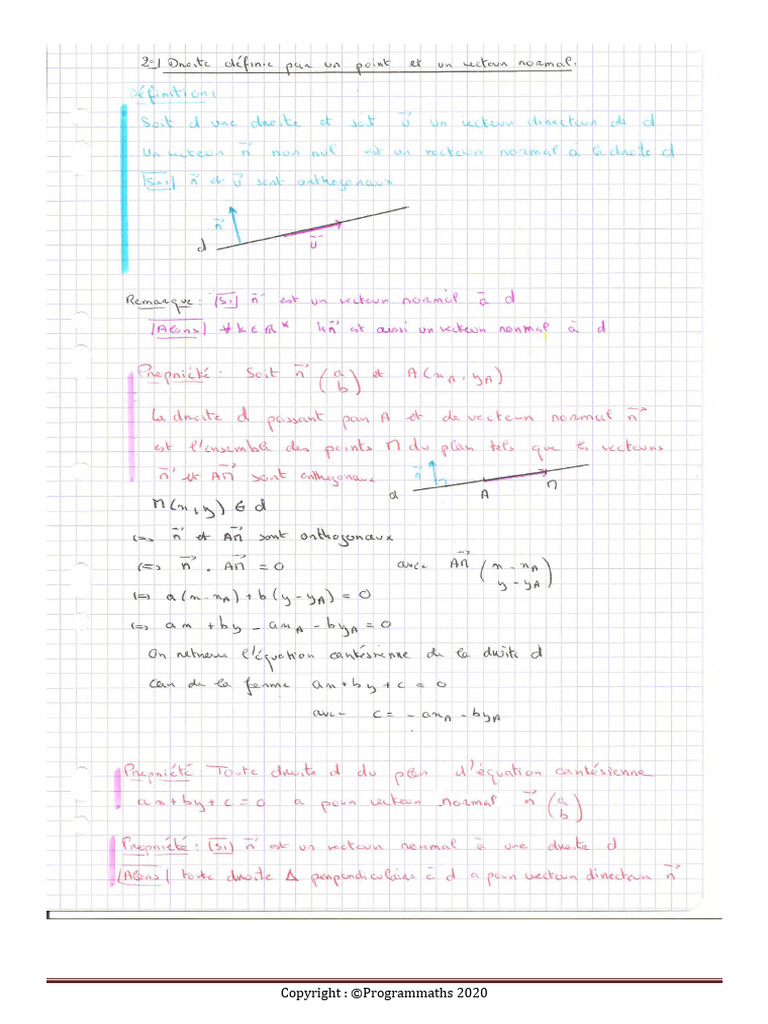 2.1 Droite définie par un point et un vecteur normal.
Définition:
Soit d une droite et soit u⃗ un vecteur directeur de d
Un vecteur n⃗ non nul est un vecteur normal à la droite d
|Ssi| n⃗ et u⃗ sont orthogonaux
n⃗
d u⃗
Remarque: |Si| n⃗ est un vecteur normal à d
|Alors| ∀k∈ℝ* kn⃗ est aussi un vecteur normal à d
Propriété: Soit n⃗ (a b) et A(xA, yA)
La droite d passant par A et de vecteur normal n⃗
est l'ensemble des points M du plan tels que les vecteurs
n⃗ et AM⃗ sont orthogonaux
n⃗
d A M
M(x,y) ∈ d
<=> n⃗ et AM⃗ sont orthogonaux
<=> n⃗ . AM⃗ = 0 avec AM⃗ (x - xA y - yA)
<=> a(x-xA)+b(y-yA)=0
<=> ax + by - axA - byA = 0
On retrouve l'équation cartésienne de la droite d
car de la forme ax+by+c=0
avec c = -axA - byA
Propriété: Toute droite d du plan d'équation cartésienne
ax+by+c=0 a pour vecteur normal n⃗ (a b)
Propriété: |Si| n⃗ est un vecteur normal à une droite d
|Alors| toute droite Δ perpendiculaire à d a pour vecteur directeur n⃗
Copyright : ©Programmaths 2020